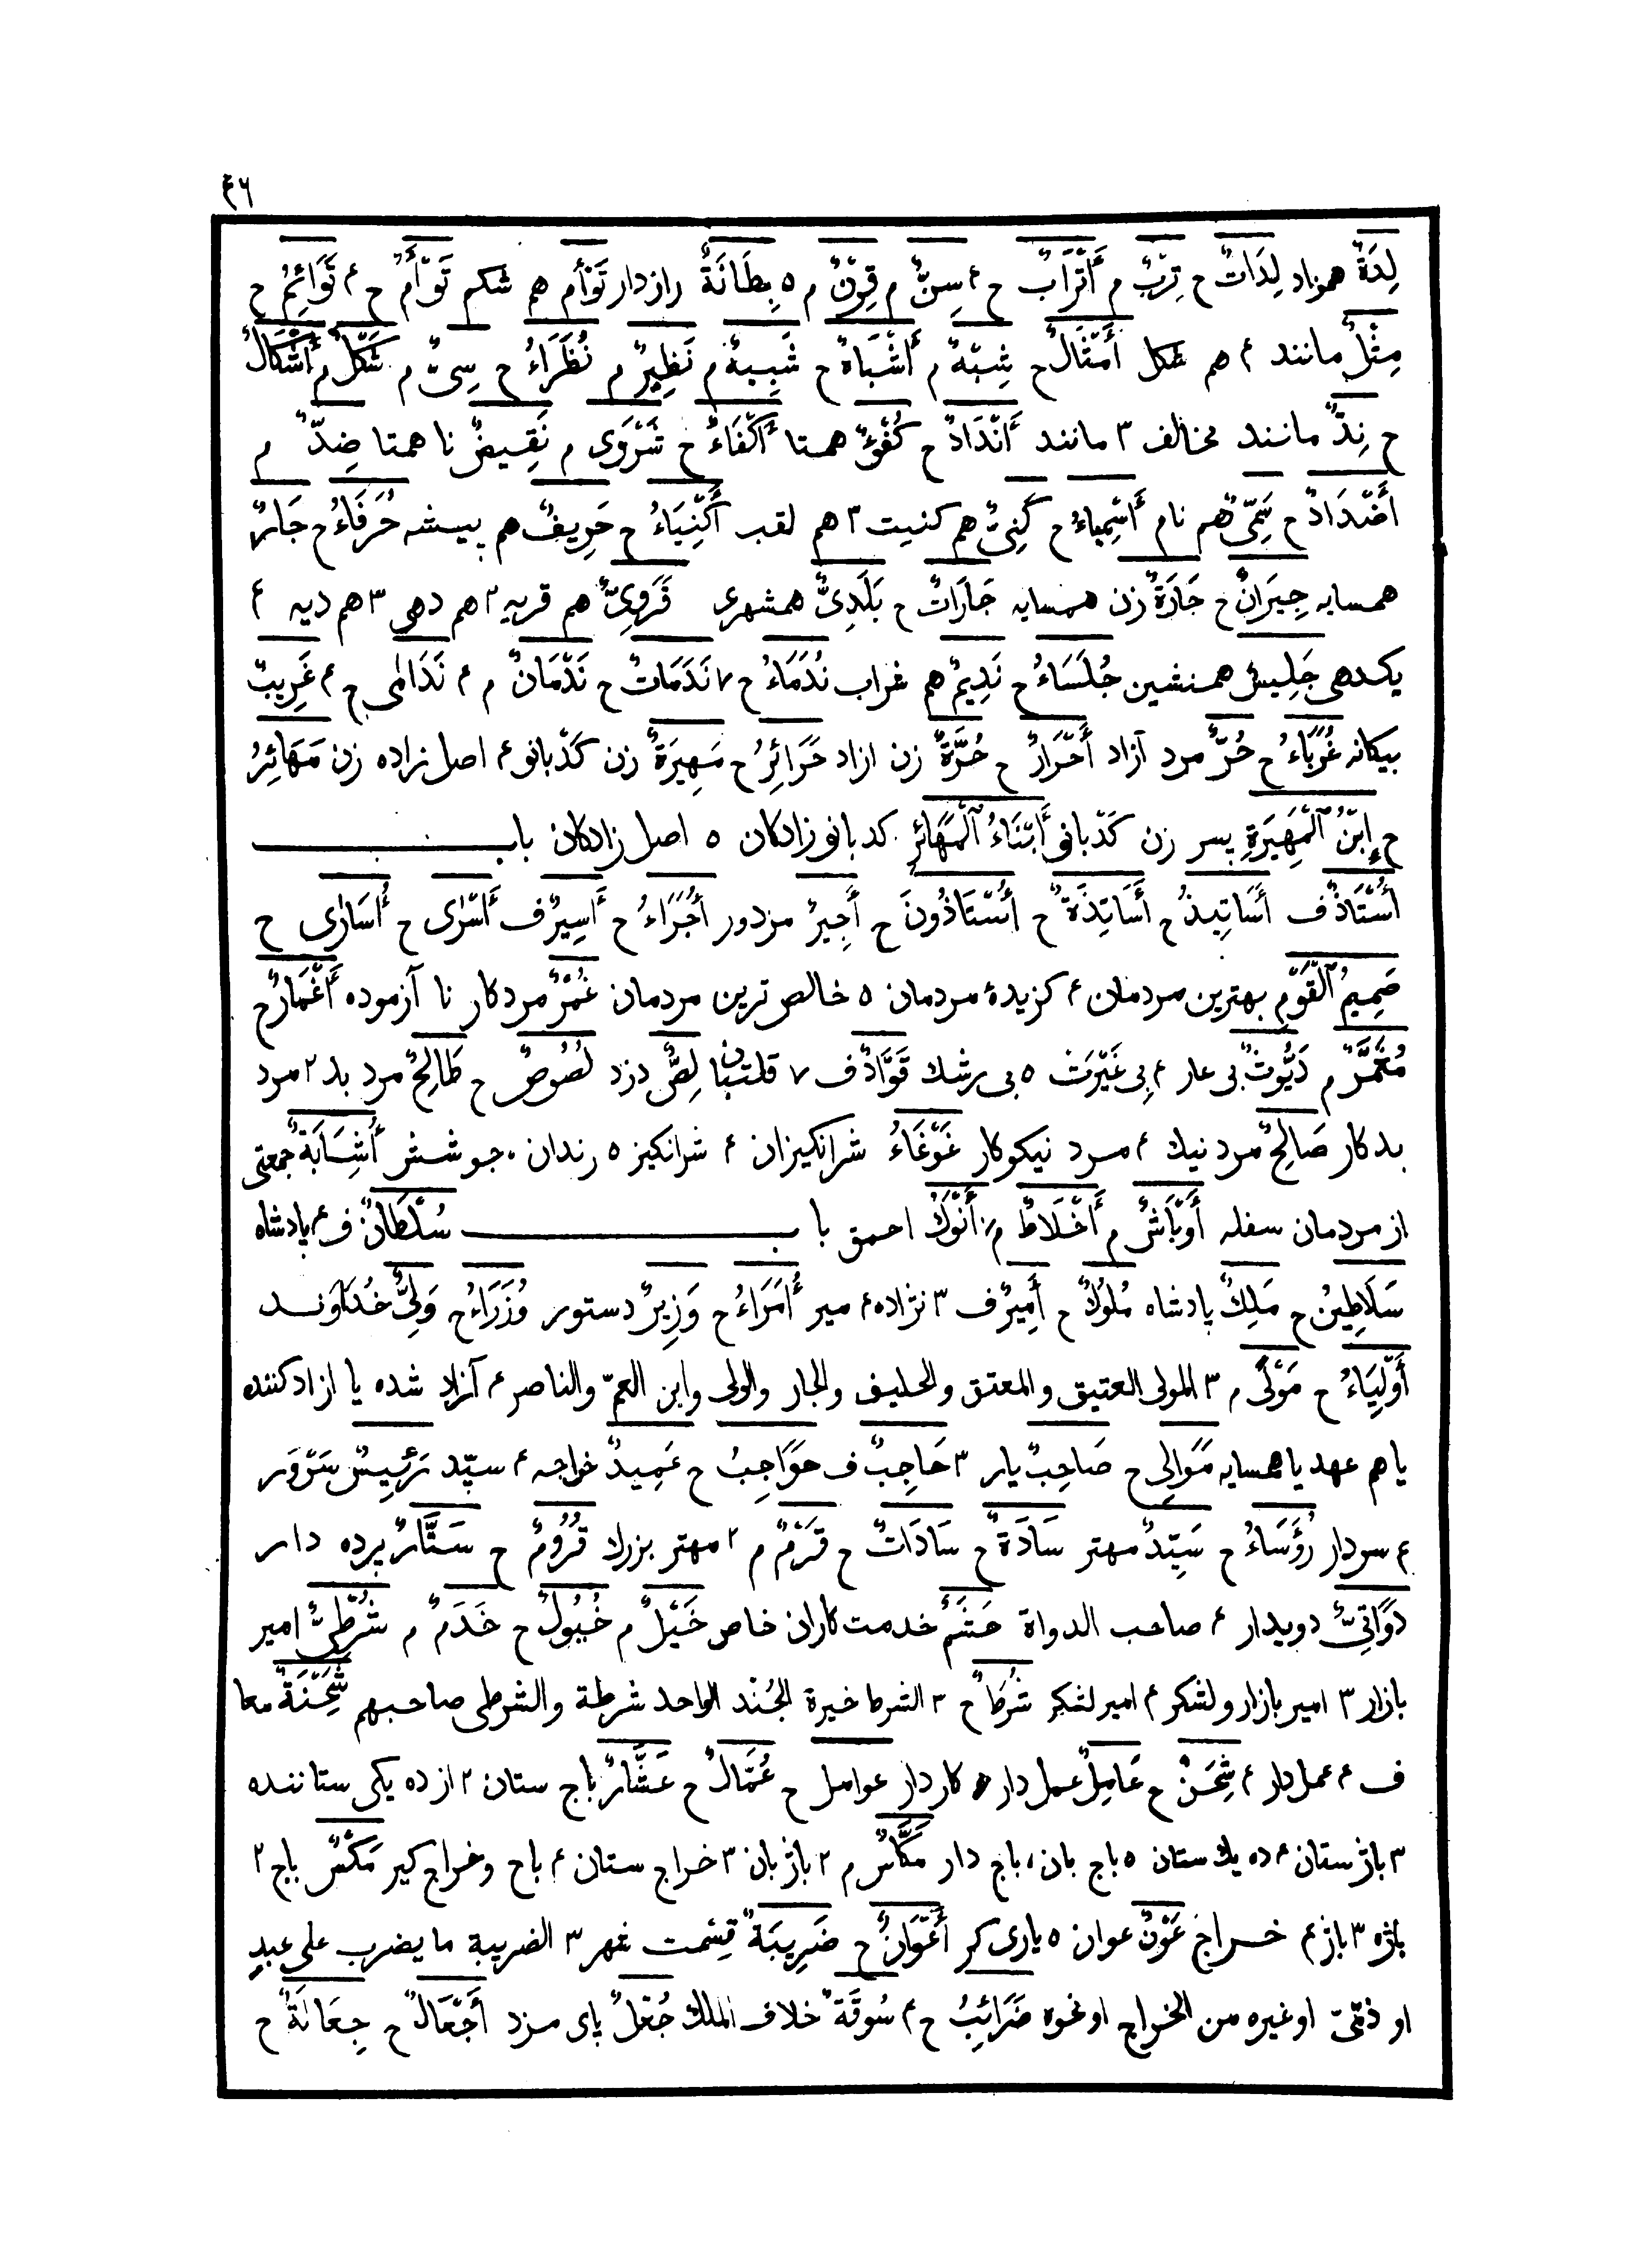 ۴۶
لِدَةٌ همزاد لِدَاتٌ ح تِرْبٌ م أَتْرَابٌ ح ۴ سِنٌّ م قِرْنٌ م ۵ بِطَانَةٌ رازدار تَوْأَم هم شكم تَوْأَمٌ ح ۴ تَوَائِمُ ح
مِثْلٌ مانند ۴ هم شكل أَمْثَالٌ ح شِبْهٌ م أَشْبَاهٌ ح شَبِيهٌ م نَظِيرٌ م نُظَرَاءُ ح سِىٌّ م شَكْلٌ م أَشْكَالٌ
ح نِدٌّ مانند مخالف ۳ مانند أَنْدَادٌ ح كُفْؤٌ همتا أَكْفَاءٌ ح شَرْوَى م نَقِيضٌ نا همتا ضِدٌّ م
أَضْدَادٌ ح سَمِىٌّ هم نام أَسْمِيَاءُ ح كَنِىٌّ هم كنيت ۳ هم لقب أَكْنِيَاءُ ح حَرِيفٌ هم پيشه حُرَفَاءُ ح جَارٌ
همسايه جِيرَانٌ ح جَارَةٌ زن همسايه جَارَاتٌ ح بَلَدِىٌّ همشهرى قَرَوِىٌّ هم قريه ۲ هم دهى ۳ هم ديه ۴
يكدهى جَلِيسٌ همنشين جُلَسَاءُ ح نَدِيمٌ هم شراب نُدَمَاءُ ح ۷ نَدَمَاتٌ ح نَدْمَانٌ م ۴ نَدَامٰى ح ۴ غَرِيبٌ
بيكانه غُرَبَاءُ ح حُرٌّ مرد آزاد أَحْرَارٌ ح حُرَّةٌ زن ازاد حَرَائِرُ ح مَهِيرَةٌ زن كَدْبانو ۴ اصل زاده زن مَهَائِرُ
ح إِبْنُ ٱلْمَهِيرَةِ پسر زن كَدْبانو أَبْنَاءُ ٱلْمَهَائِرِ كدبانو زادكان ۵ اصل زادكان باب
أُسْتَاذٌ ف أَسَاتِيذُ ح أَسَاتِذَةٌ ح أُسْتَاذُونَ ح أَجِيرٌ مزدور أُجَرَاءُ ح أَسِيرٌ ف أَسْرٰى ح أُسَارٰى ح
صَمِيمُ ٱلْقَوْمِ بهترين مردمان ۴ كزيدۀ مردمان ۵ خالص ترين مردمان غُمْرٌ مرد كار نا آزموده أَغْمَارٌ ح
مُغَمَّرٌ م دَيُّوثٌ بى عار ۴ بى غَيْرَت ۵ بى رشك قَوَّادٌ ف ۷ قلتبان لِصٌّ دزد لُصُوصٌ ح طَالِحٌ مرد بد ۲ مرد
بدكار صَالِحٌ مرد نيك ۴ مرد نيكوكار غَوْغَاءُ شرانكيزان ۴ شرانكيز ۵ رندان . جوشش أُشَابَةٌ جمعتى
از مردمان سفله أَوْبَاشٌ م أَخْلَاطٌ م أَنْوَكُ احمق باب سُلْطَانٌ ف ۴ پادشاه
سَلَاطِينُ ح مَلِكٌ پادشاه مُلُوكٌ ح أَمِيرٌ ف ۳ نژاده ۴ مير أُمَرَاءُ ح وَزِيرٌ دستور وُزَرَاءُ ح وَلِىٌّ خُدَاوند
أَوْلِيَاءُ ح مَوْلًى م ۳ المولى العتيق والمعتق والحليف والجار والولى وابن العمّ والناصر ۴ آزاد شده يا ازاد كننده
يا هم عهد يا همسايه مَوَالِى ح صَاحِبٌ يار ۳ حَاجِبٌ ف حَوَاجِبُ ح عَمِيدٌ خواجه ۴ سيّد رَئِيسٌ سَرْوَر
۴ سردار رُؤَسَاءُ ح سَيِّدٌ مهتر سَادَةٌ ح سَادَاتٌ ح قَرْمٌ م ۲ مهتر بزرك قُرُومٌ ح سَتَّارٌ پرده دار
دَوَاتِىٌّ دويدار ۴ صاحب الدواة حَشَمٌ خدمت كاران خاص خَيْلٌ م خُيُولٌ ح خَدَمٌ م شُرْطِىٌّ امير
بازار ۳ امير بازار ولشكر ۴ امير لشكر شُرَطٌ ح ۳ الشرط خيرة الجُنْد الواحد شرطة والشرطى صاحبهم شِحْنَةٌ معا
ف ۴ عمل دار ۴ شِحَنٌ ح عَامِلٌ عمل دار ۵ كاردار عوامل ح عُمَّالٌ ح عَشَّارٌ باج ستان ۲ از ده يكى ستاننده
۳ باژستان ۴ ده يك ستان ۵ باج بان، باج دار مَكَّاسٌ م ۲ باژبان ۳ خراج ستان ۴ باج وخراج كير مَكْسٌ باج ۲
باژه ۳ باژ ۴ خراج عَوْنٌ عوان ۵ يارى كر أَعْوَانٌ ح ضَرِيبَةٌ قِسْمت شهر ۳ الضريبة ما يضرب على عبدٍ
او ذمّىّ او غيره من الخراج او نحوه ضَرَائِبُ ح ۴ سُوقَةٌ خلاف الملك جُعْلٌ پاى مزد أَجْعَالٌ ح جِعَالَةٌ ح